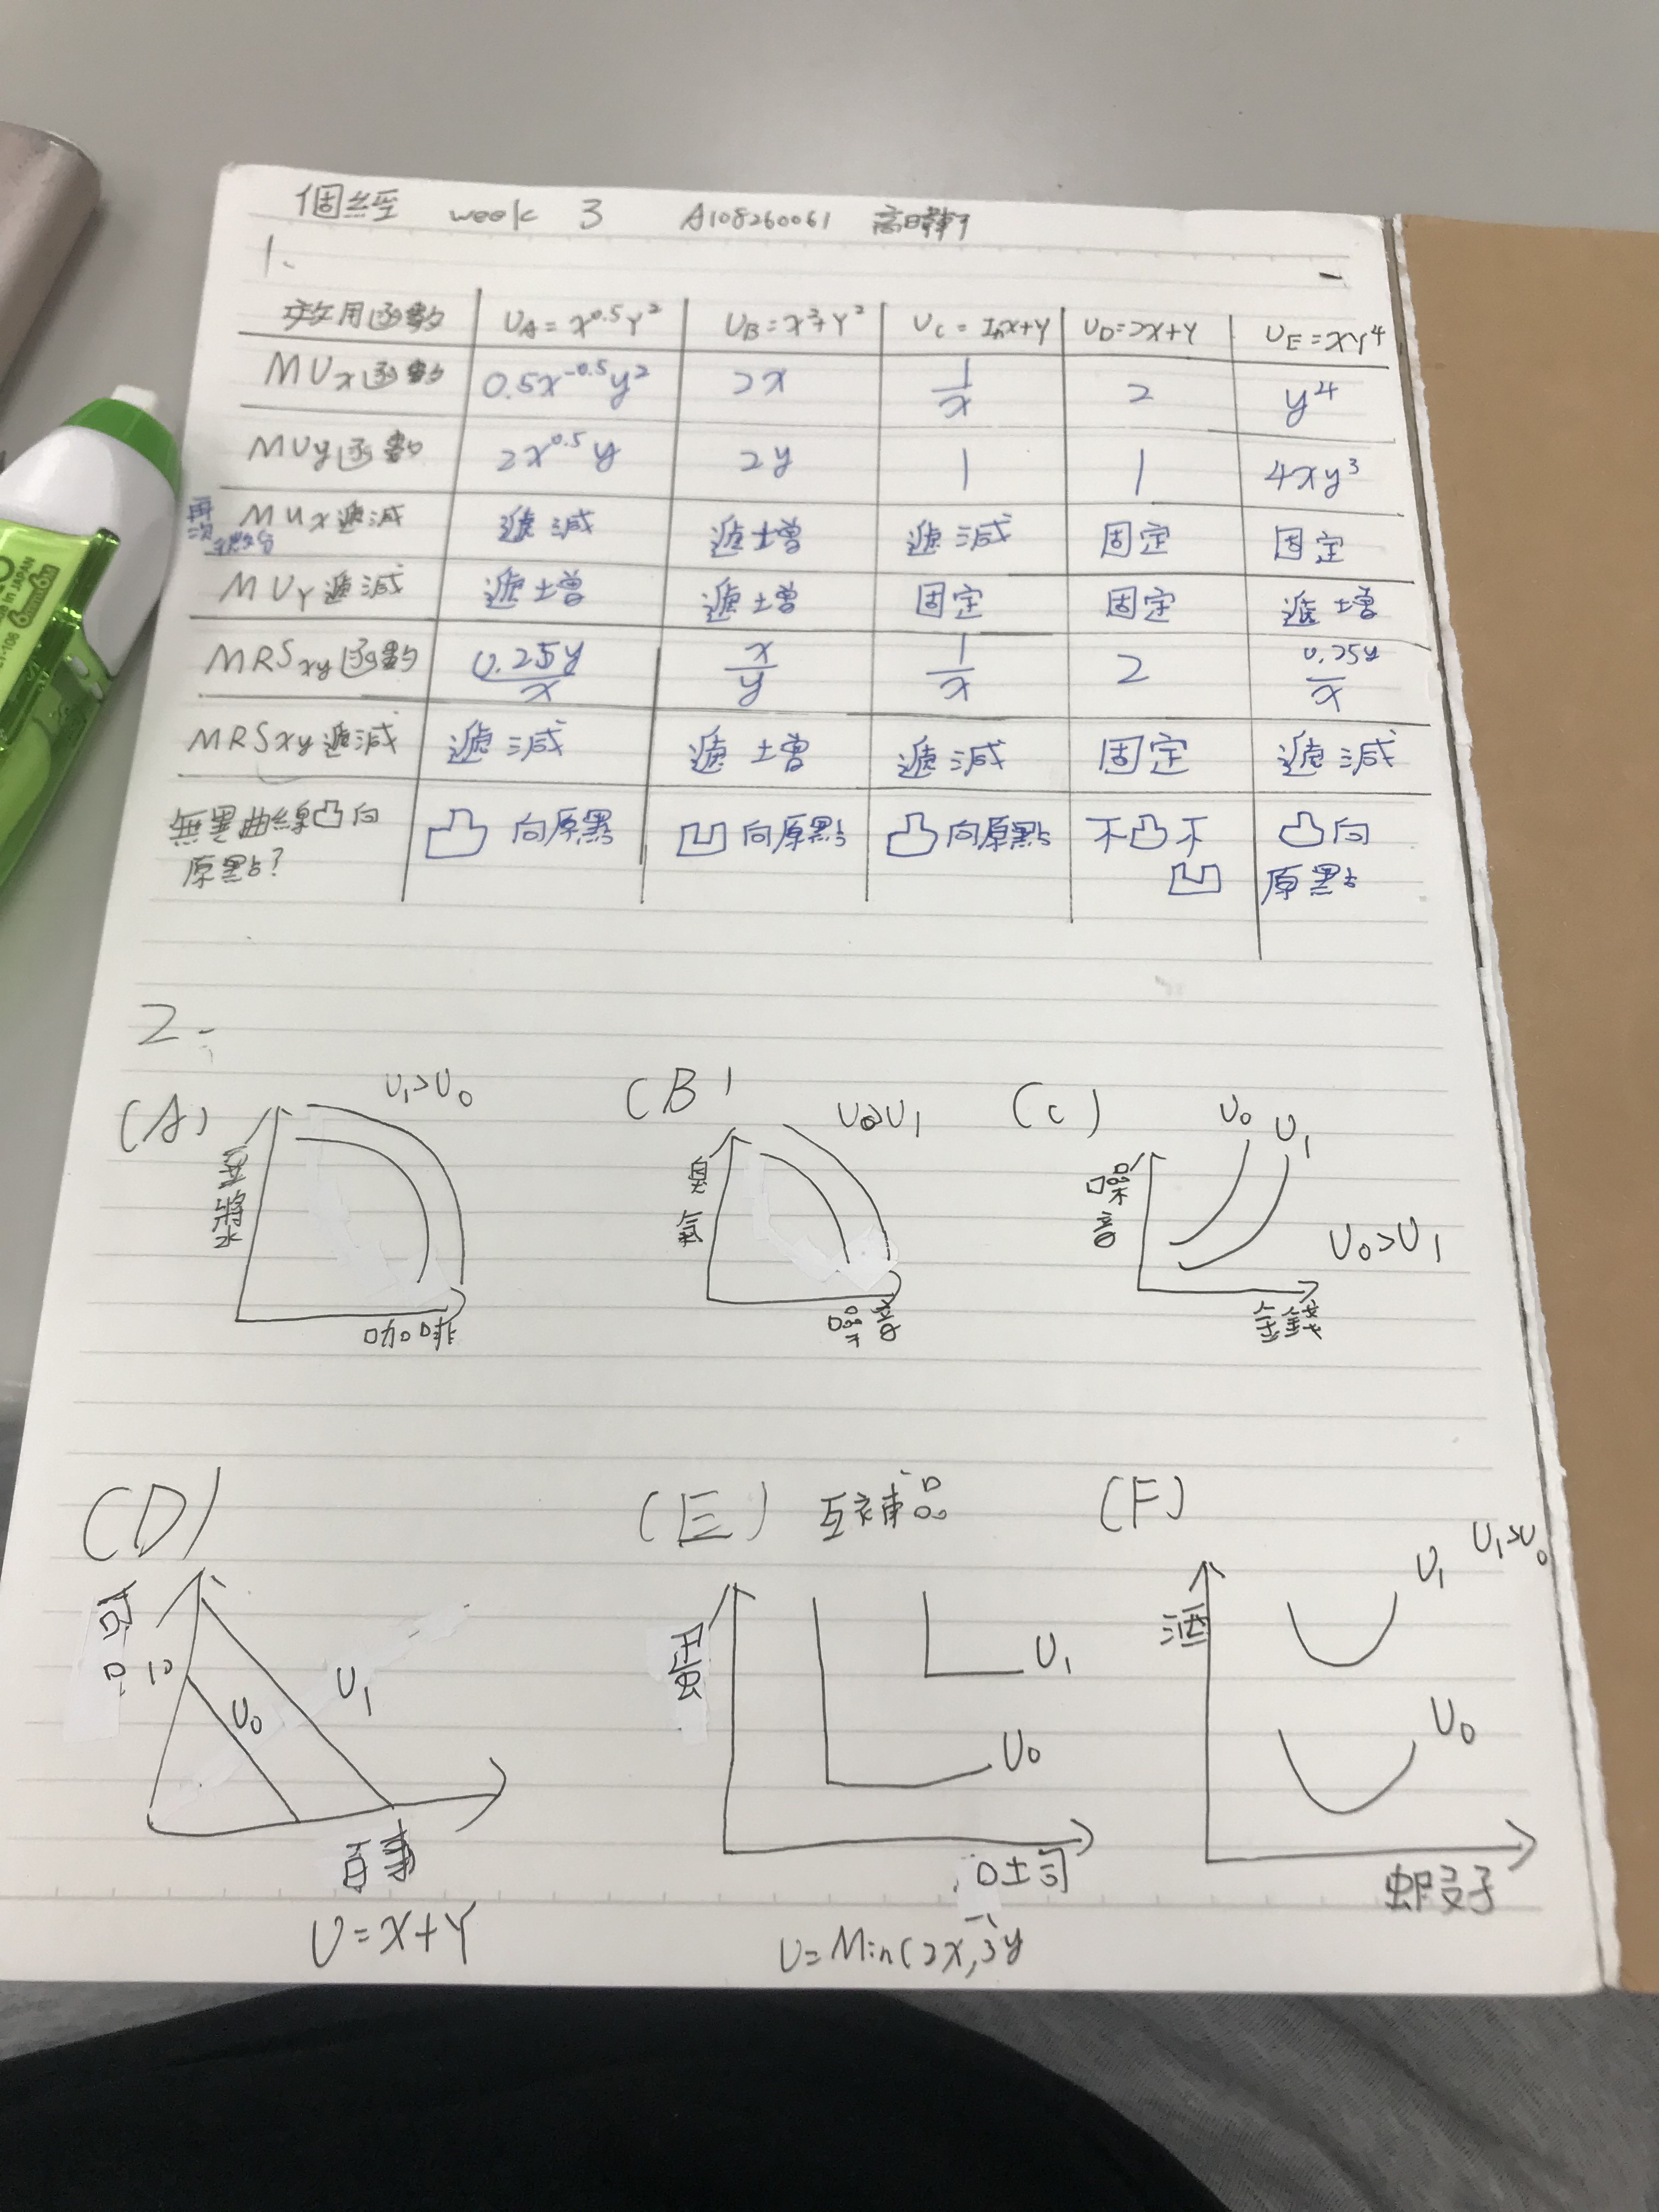 個經 week 3 A108260061
1.
效用函數 U_A = x^0.5 Y^2 U_B = x^2+Y^2 U_C = Inx+Y U_D=2x+Y U_E=xY^4
MUx函數 0.5x^-0.5 y^2 2x 1/x 2 y^4
MUy函數 2x^0.5 y 2y 1 1 4xy^3
再次微分 MUx遞減 遞減 遞增 遞減 固定 固定
MUY遞減 遞增 遞增 固定 固定 遞增
MRSxy函數 0.25y/x x/y 1/x 2 0.25y/x
MRSxy遞減 遞減 遞增 遞減 固定 遞減
無異曲線凸向原點? 凸向原點 凹向原點 凸向原點 不凸不凹 凸向原點
2.
(A) U1>U0
咖啡
(B) U0>U1
臭氣
噪音
(C) U0 U1
噪音
U0>U1
金錢
(D)
可口
U0 U1
百事
U=X+Y
(E) 互補品
蛋
U1
U0
吐司
U=Min(2x,3y
(F) U1>U0
U1
酒
U0
蝦子
MADE IN JAPAN
6mm×6m